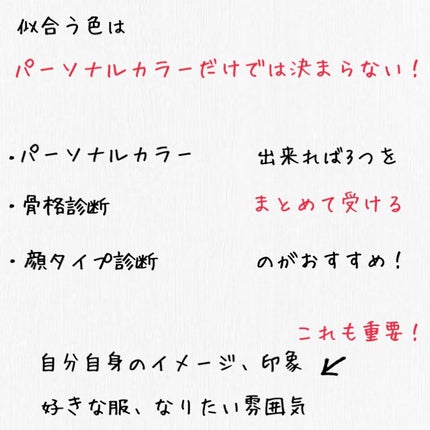 似合う色は
パーソナルカラーだけでは決まらない！
・パーソナルカラー
・骨格診断
・顔タイプ診断
出来れば3つを
まとめて受ける
のがおすすめ！
これも重要！
自分自身のイメージ、印象
好きな服、なりたい雰囲気